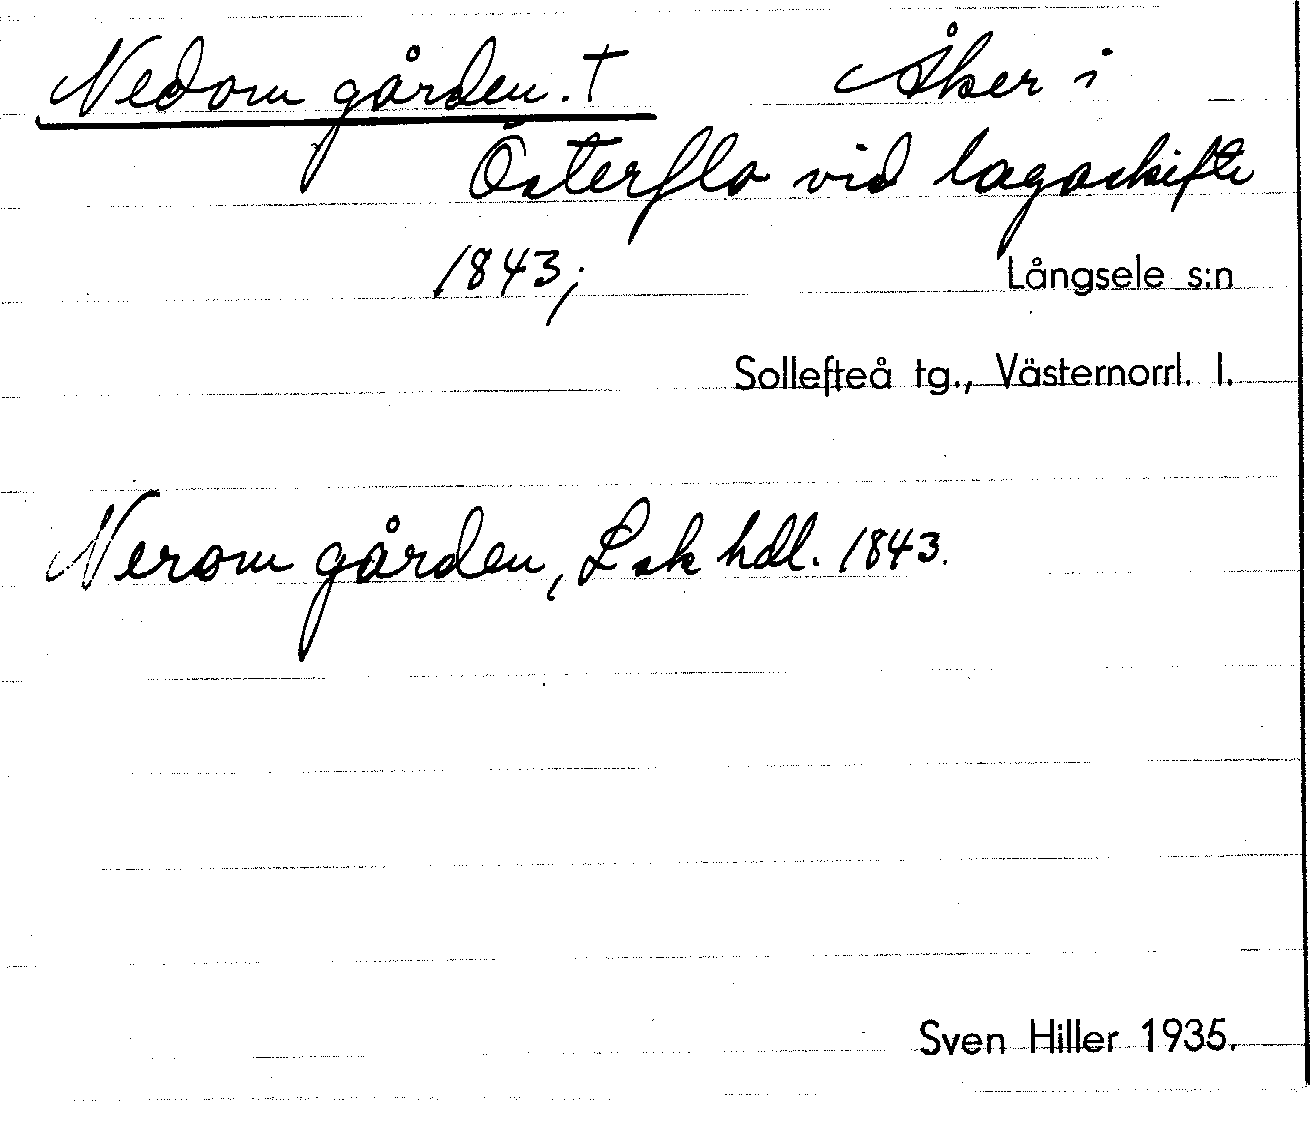 Nedom gården. † Åker i
Österflo vid lagaskifte
1843;
Långsele s:n
Sollefteå tg., Västernorrl. l.
Nerom gården, Lsk hdl. 1843.
Sven Hiller 1935.